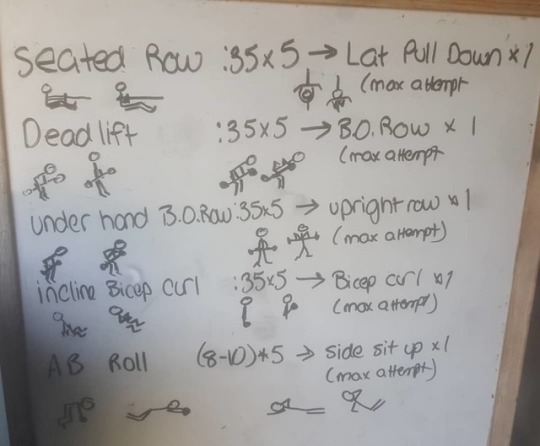 Seated Row :35x5 → Lat Pull Down x 1
(max attempt
Deadlift :35x5 → B.O. Row x 1
(max attempt
under hand B.O. Row :35x5 → upright row x 1
(max attempt)
incline Bicep curl :35x5 → Bicep curl x 1
(max attempt)
AB Roll (8-10)*5 → side sit up x 1
(max attempt)